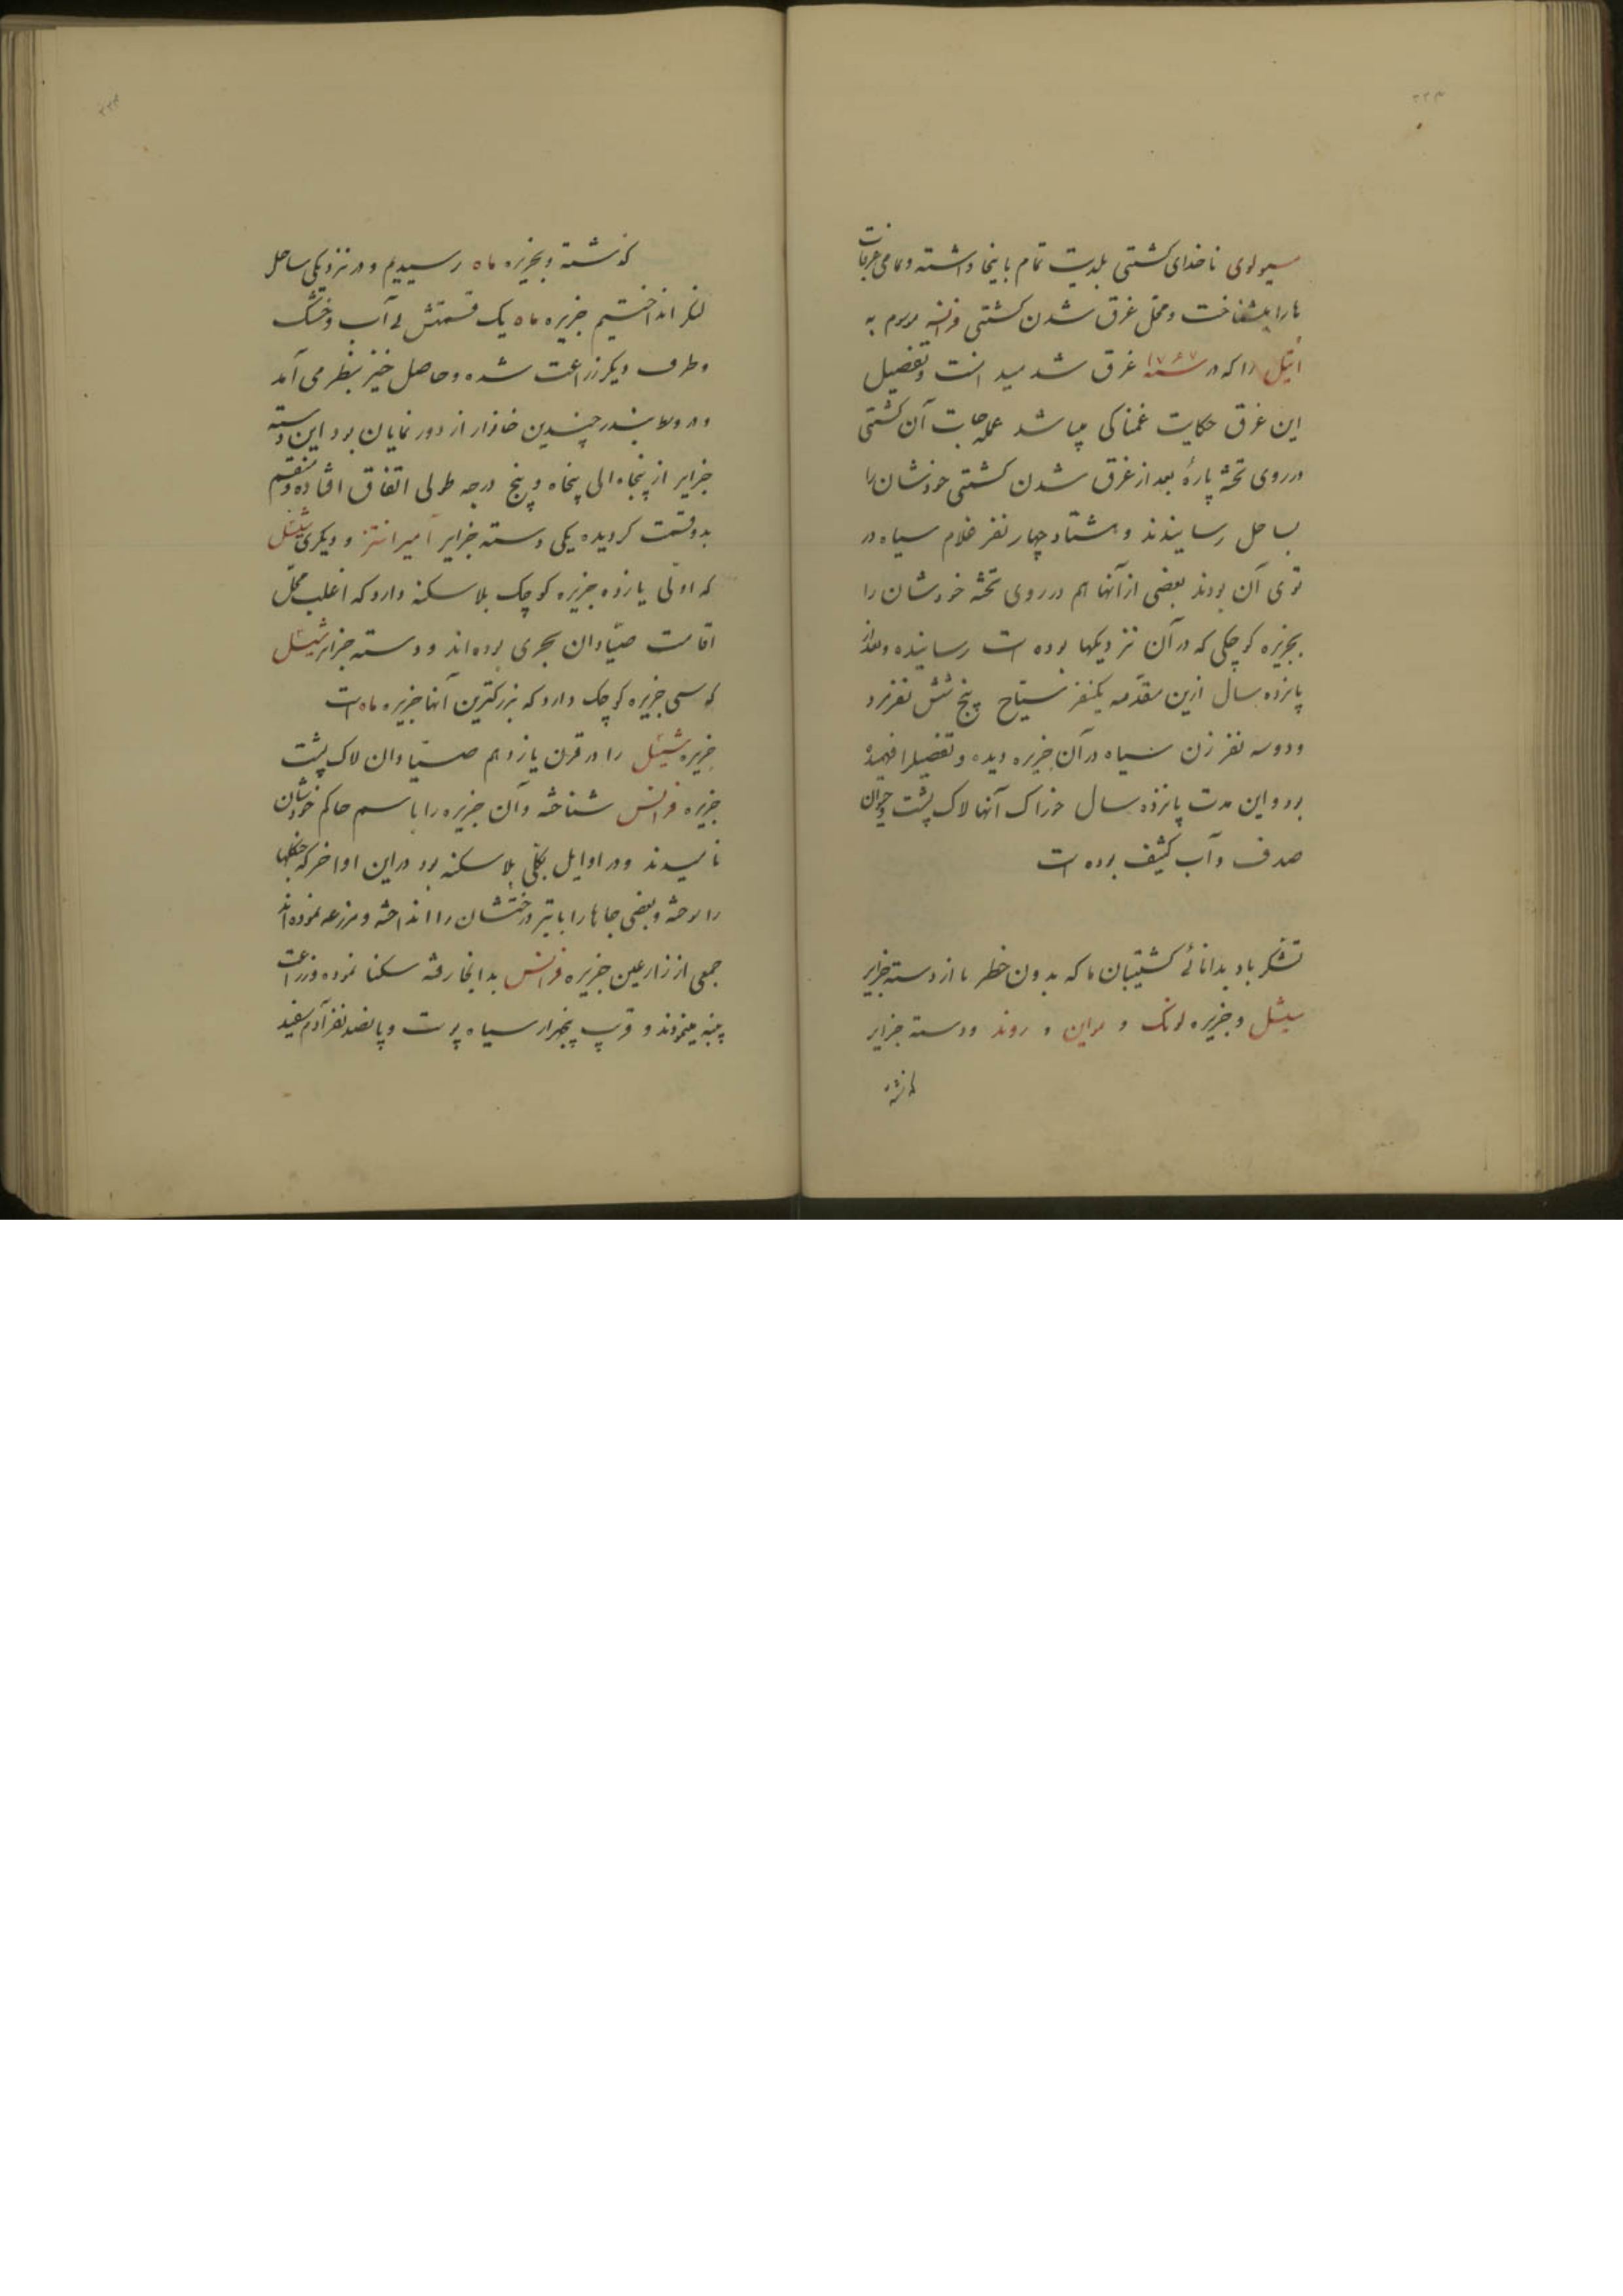 ۲۲۳
مسیو لوی ناخدای کشتی بلدیت تمام باینجا داشته و تمامی
ها را میشناخت و محل غرق شدن کشتی فرانسه موسوم به
اتیل را که در سنه ۱۷۶۷ غرق شد میدانست و تفصیل
این غرق حکایت غمناکی میباشد عمله‌جات آن کشتی
در روی تخته پارهٔ بعد از غرق شدن کشتی خودشان را
بساحل رسانیدند و هشتاد چهار نفر غلام سیاه در
توی آن بودند بعضی از آنها هم در روی تخته خودشان را
بجزیره کوچکی که در آن نزدیکیها بوده است رسانیده و بعد از
پانزده سال ازین مقدمه یکنفر سیاح پنج شش نفر مرد
و دو سه نفر زن سیاه در آن جزیره دیده و تفصیل را فهمیده
بود و این مدت پانزده سال خوراک آنها لاک پشت و حیوان
صدف و آب کثیف بوده است
تشکر باد بدانائی کشتیبان ما که بدون خطر ما از دسته جزایر
سیشل و جزیره لونک و مواین و روند و دسته جزایر
گذشته
۲۲۴
گذشته و بجزیره ماه رسیدیم و در نزدیکی ساحل
لنگر انداختیم جزیره ماه یک قسمتش بی آب و خشک
و طرف دیگر زراعت شده و حاصل خیز بنظر می آمد
و در وسط بندر چندین خانوار از دور نمایان بود این دسته
جزایر از پنجاه الی پنجاه و پنج درجه طولی اتفاق افتاده و منقسم
بدو قسمت گردیده یکی دسته جزایر آمیرانتز و دیگری شیشل
که اولی یازده جزیره کوچک بلا سکنه دارد که اغلب محل
اقامت صیادان بحری بوده‌اند و دسته جزایر شیشل
که سی جزیره کوچک دارد که بزرگترین آنها جزیره ماه است
جزیره شیشل را در قرن یازدهم صیادان لاک پشت
جزیره فرانس شناخته و آن جزیره را باسم حاکم خودشان
نامیدند و در اوایل بکلی بلا سکنه بود در این اواخر که جنگلها
را سوخته و بعضی جاها را با تبر درختشان را انداخته و مزرعه نموده‌اند
جمعی از زارعین جزیره فرانس بدانجا رفته سکنا نموده و زراعت
پنبه مینمودند و قرب پنجهزار سیاه پوست و پانصد نفر آدم سفید